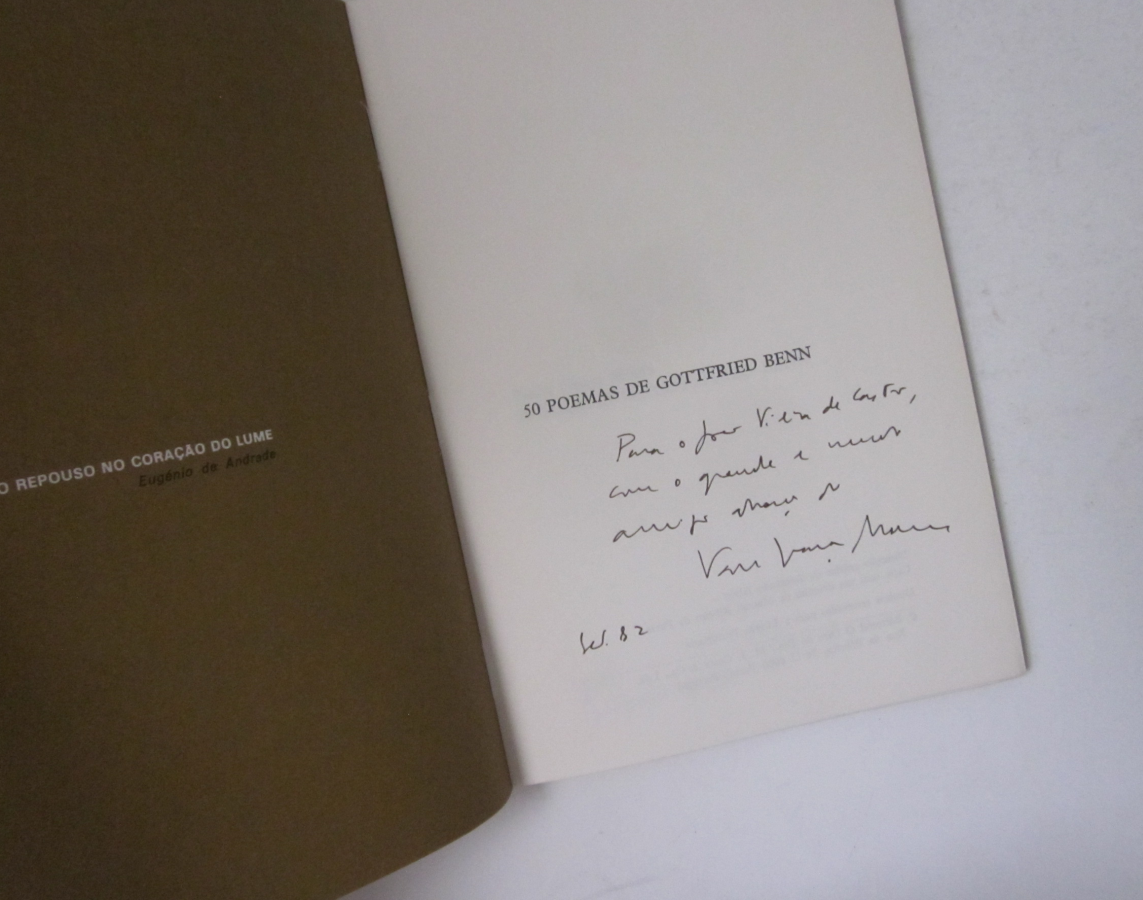 O REPOUSO NO CORAÇÃO DO LUME
Eugénio de Andrade
50 POEMAS DE GOTTFRIED BENN
Para o Vieira de Castro,
com o grande e
amigo abraço do
Vasco Graça Moura
Set. 82